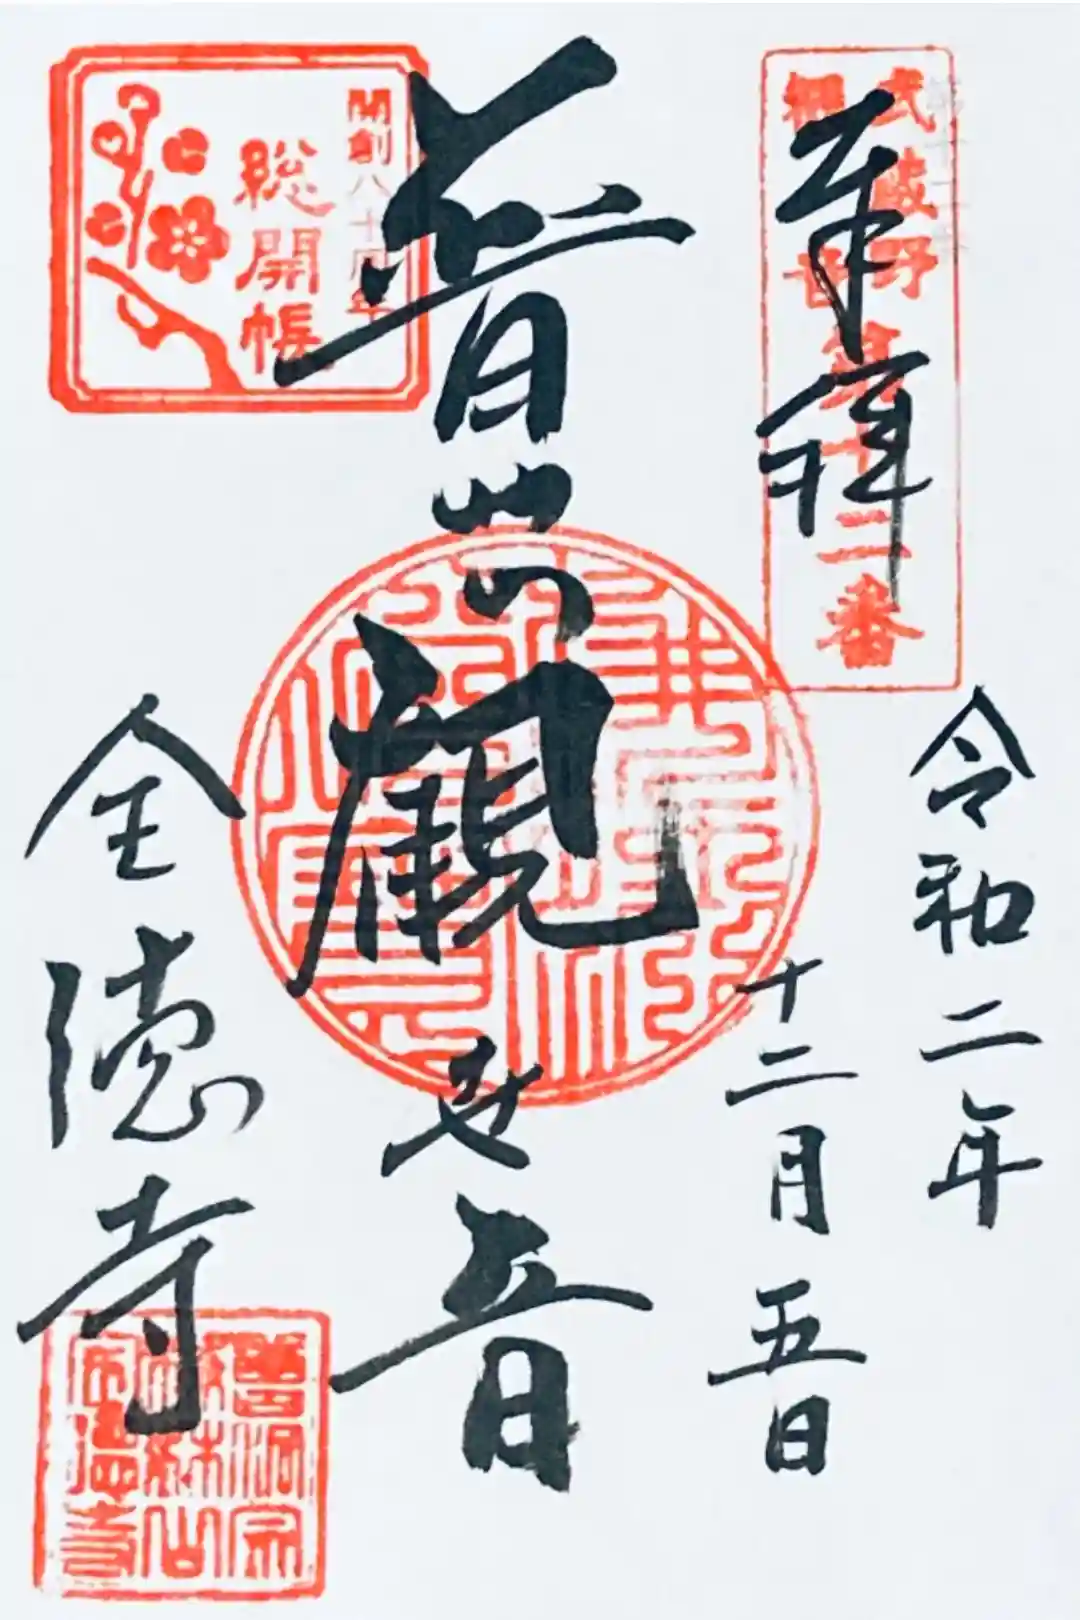 奉拝
武蔵野
観音
第十二番
令和二年
十二月五日
開創八十周年
総開帳
普
観世音
全徳寺
曹洞宗
林山
全徳寺